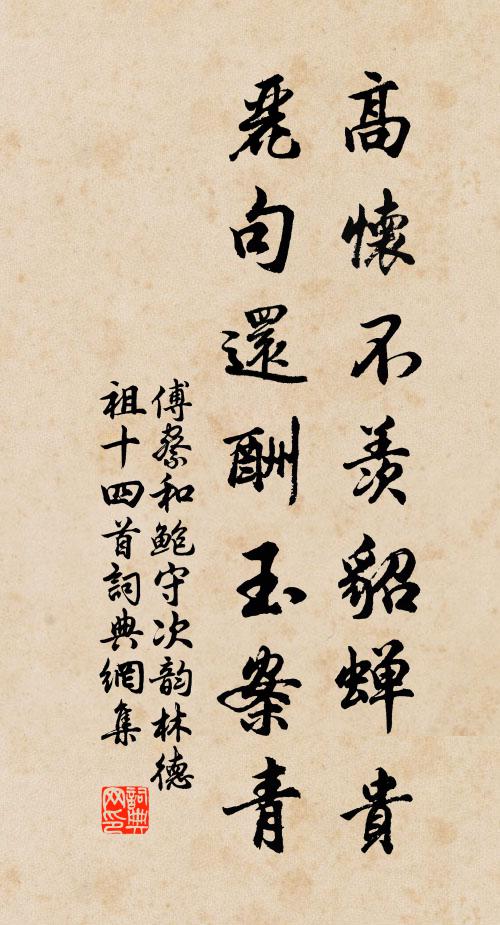 高懷不羨貂蟬貴
麗句還酬玉案青
傅察和鮑守次韵林德
祖十四首詞典網集
詞典
网印